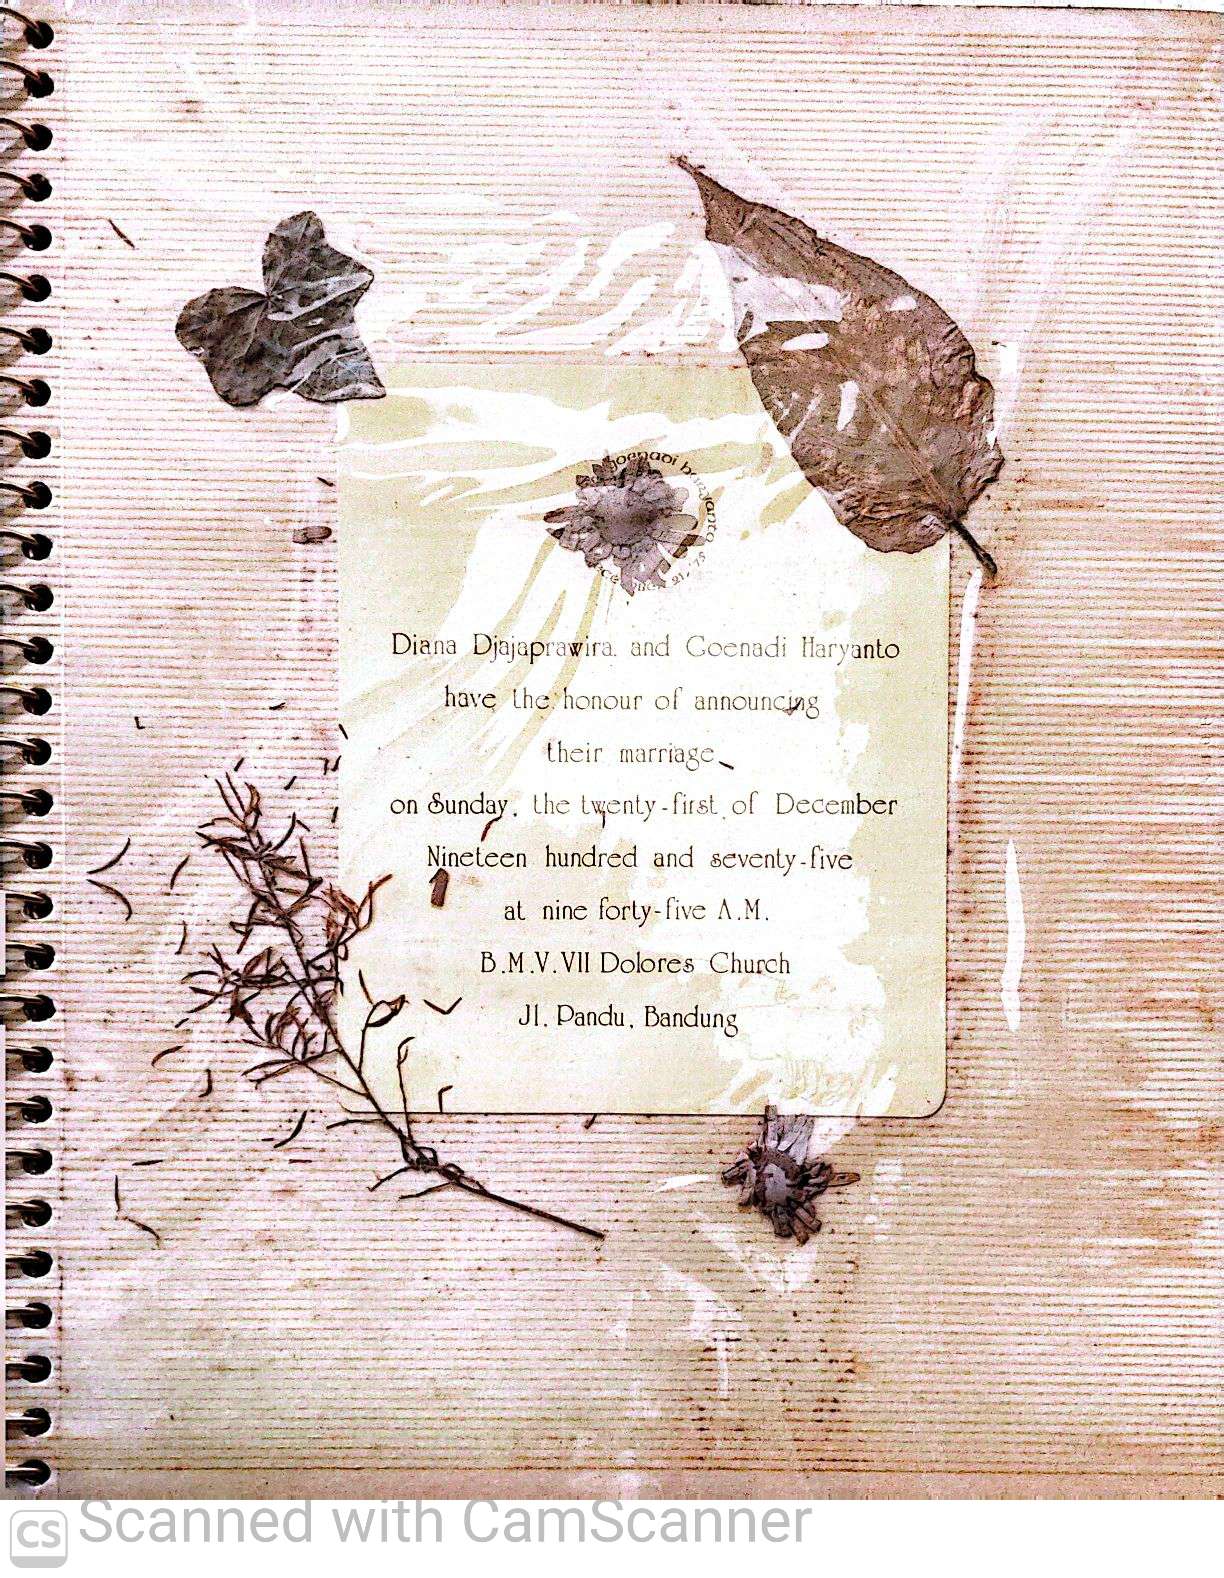 goenadi haryanto
21, '75
Diana Djajaprawira and Goenadi Haryanto
have the honour of announcing
their marriage
on Sunday, the twenty-first of December
Nineteen hundred and seventy-five
at nine forty-five A.M.
B.M.V. VII Dolores Church
Jl. Pandu, Bandung
CS Scanned with CamScanner